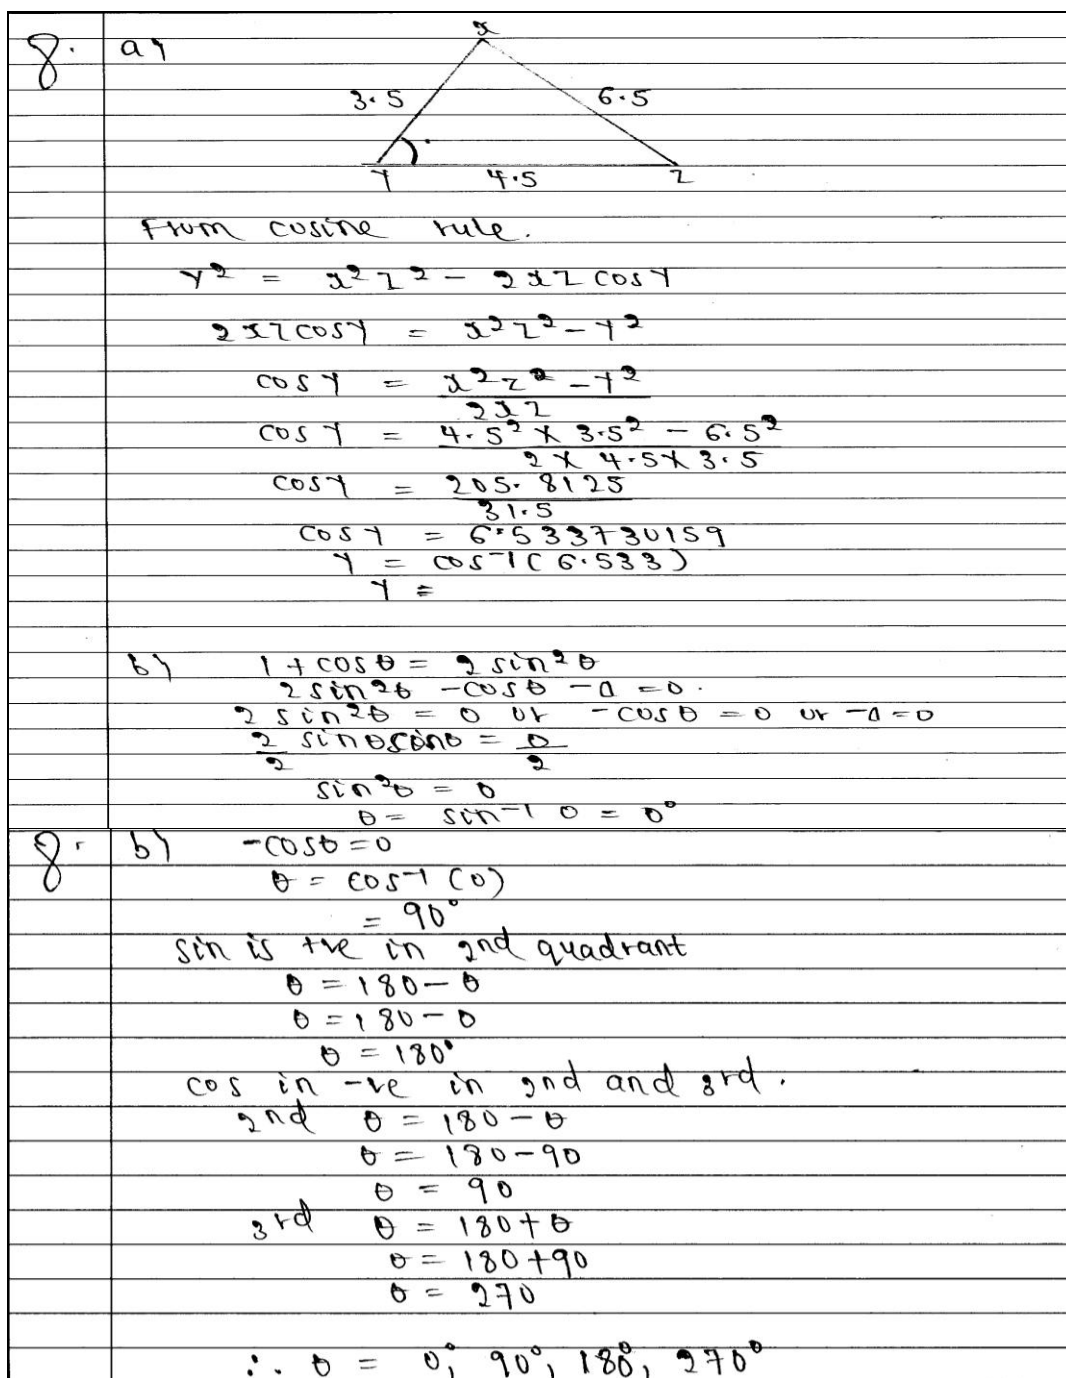 8. a)
x
3.5 6.5
Y 4.5 Z
From cosine rule.
Y² = x²z² - 2xz cosY
2xzcosY = x²z² - Y²
cosY = x²z² - Y² / 2xz
cosY = 4.5² × 3.5² - 6.5² / 2 × 4.5 × 3.5
cosY = 205.8125 / 31.5
cosY = 6.533730159
Y = cos⁻¹(6.533)
Y =
b) 1 + cosθ = 2sin²θ
2sin²θ - cosθ - 1 = 0.
2sin²θ = 0 or -cosθ = 0 or -1 = 0
2 sinθsinθ / 2 = 0 / 2
sin²θ = 0
θ = sin⁻¹ 0 = 0°
8. b) -cosθ = 0
θ = cos⁻¹(0)
= 90°
sin is +ve in 2nd quadrant
θ = 180 - θ
θ = 180 - 0
θ = 180°
cos in -ve in 2nd and 3rd.
2nd θ = 180 - θ
θ = 180 - 90
θ = 90
3rd θ = 180 + θ
θ = 180 + 90
θ = 270
∴ θ = 0°, 90°, 180°, 270°